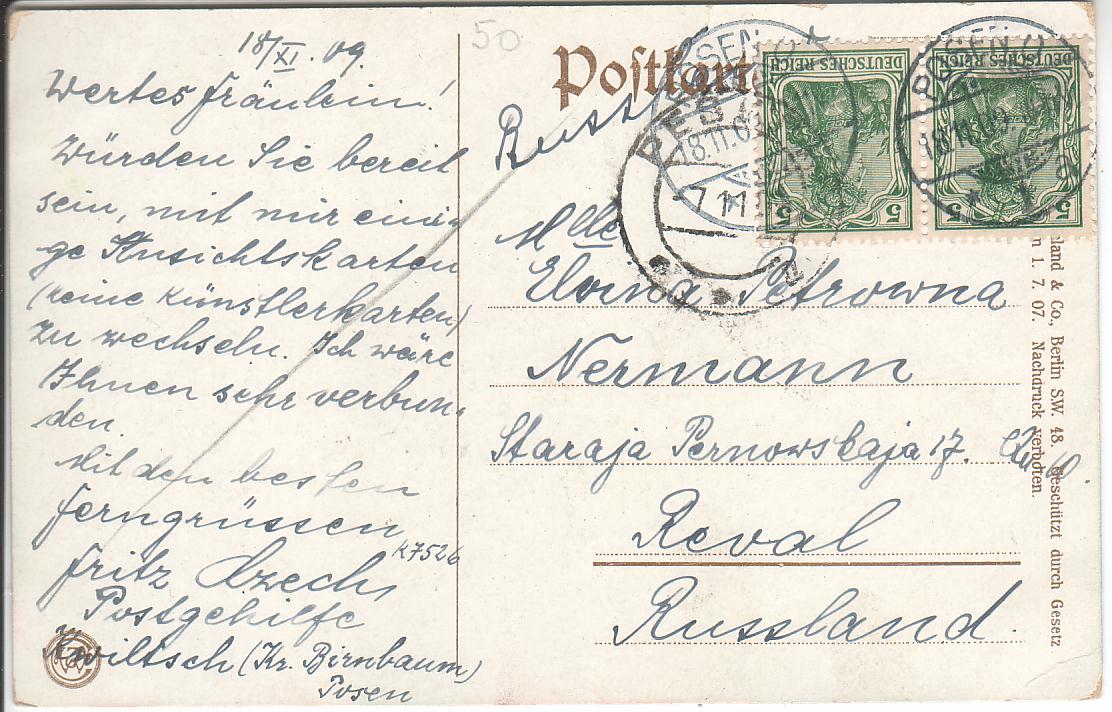 50
18/XI. 09.
Wertes Fräulein!
Würden Sie bereit
sein, mit mir eini-
ge Ansichtskarten
(keine Künstlerkarten)
zu wechseln. Ich wäre
Ihnen sehr verbun-
den.
Mit den besten
Ferngrüssen
Fritz Czech,
K7526
Postgehilfe
Kwiltsch (Kr. Birnbaum)
Posen
Postkarte
Russ
Mlle
Petrowna
Nermann
Staraja Pernowskaja 17.
Reval
Russland.
DEUTSCHES REICH
5 5
DEUTSCHES REICH
5 5
POSEN
18.11.09
POSEN
18.11.09
land & Co., Berlin S.W. 48. Geschützt durch Gesetz
1. 7. 07. Nachdruck verboten.